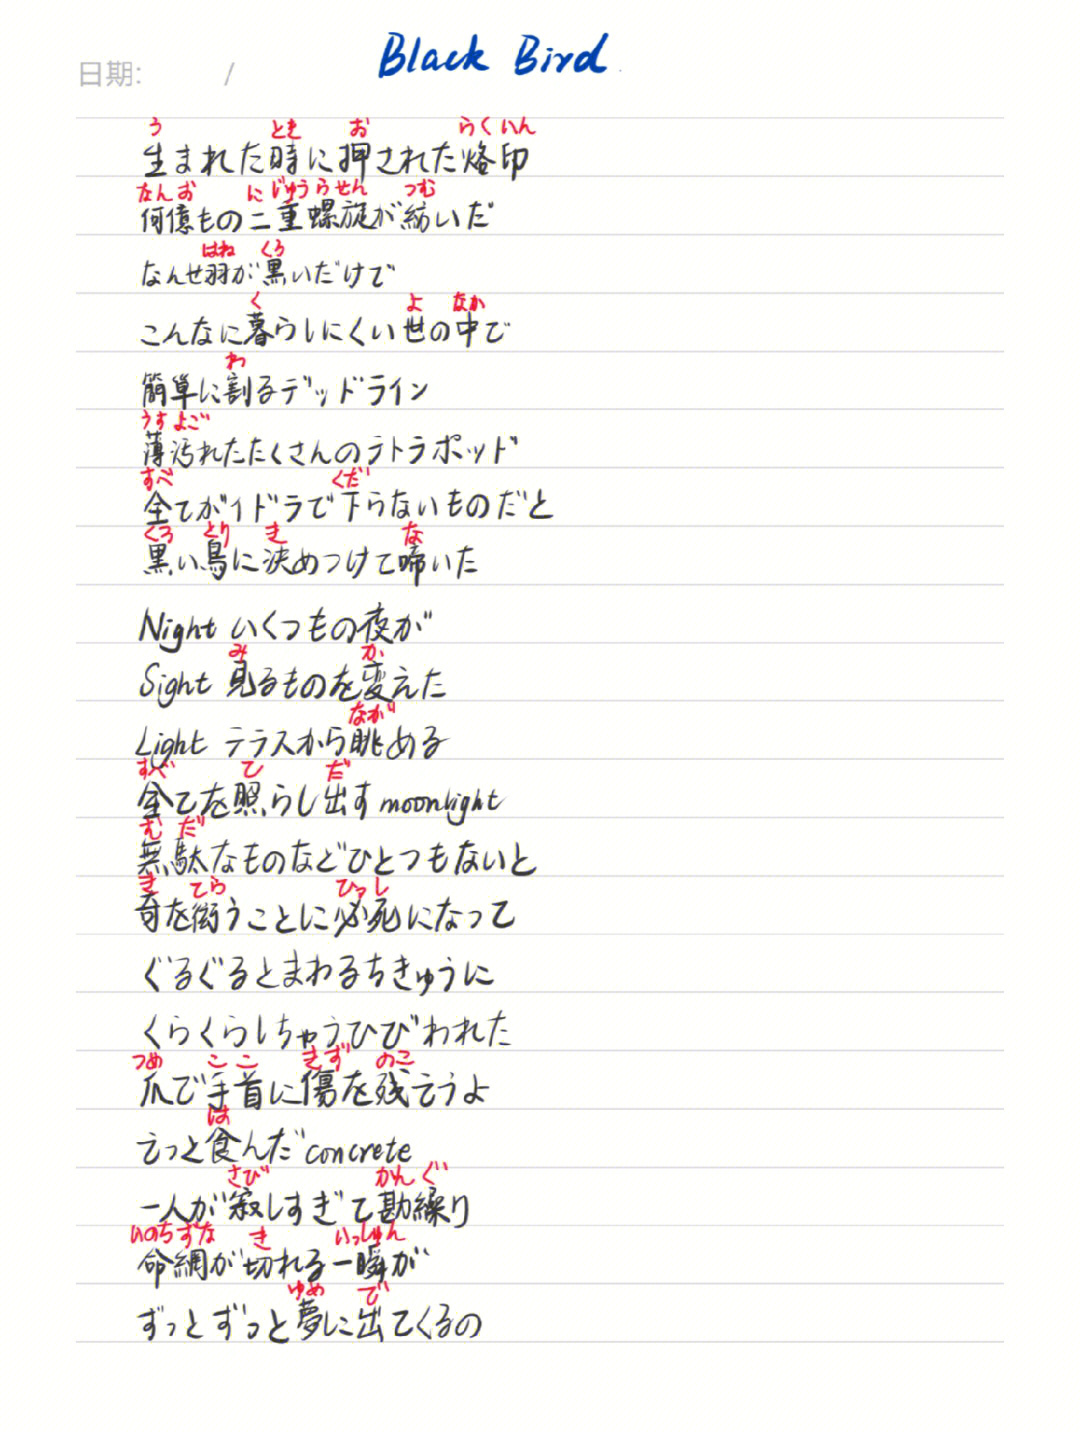 Black Bird
日期: /
う とき お らくいん
生まれた時に押された烙印
なんお にじゅうらせん つむ
何億もの二重螺旋が紡いだ
はね くろ
なんせ羽が黒いだけで
く よ なか
こんなに暮らしにくい世の中で
わ
簡単に割るデッドライン
うすよご
薄汚れたたくさんのテトラポッド
すべ くだ
全てがイドラで下らないものだと
くろ とり き な
黒い鳥に決めつけて啼いた
Night いくつもの夜が
み か
Sight 見るものを変えた
なが
Light テラスから眺める
すべ ひ だ
全てを照らし出すmoonlight
む だ
無駄なものなどひとつもないと
き てら ひっし
奇を衒うことに必死になって
ぐるぐるとまわるちきゅうに
くらくらしちゃうひびわれた
つめ ここ きず のこ
爪で手首に傷を残そうよ
は
そっと食んだconcrete
さび かんぐ
一人が寂しすぎて勘繰り
いのちずな き いっしゅん
命綱が切れる一瞬が
ゆめ で
ずっとずっと夢に出てくるの